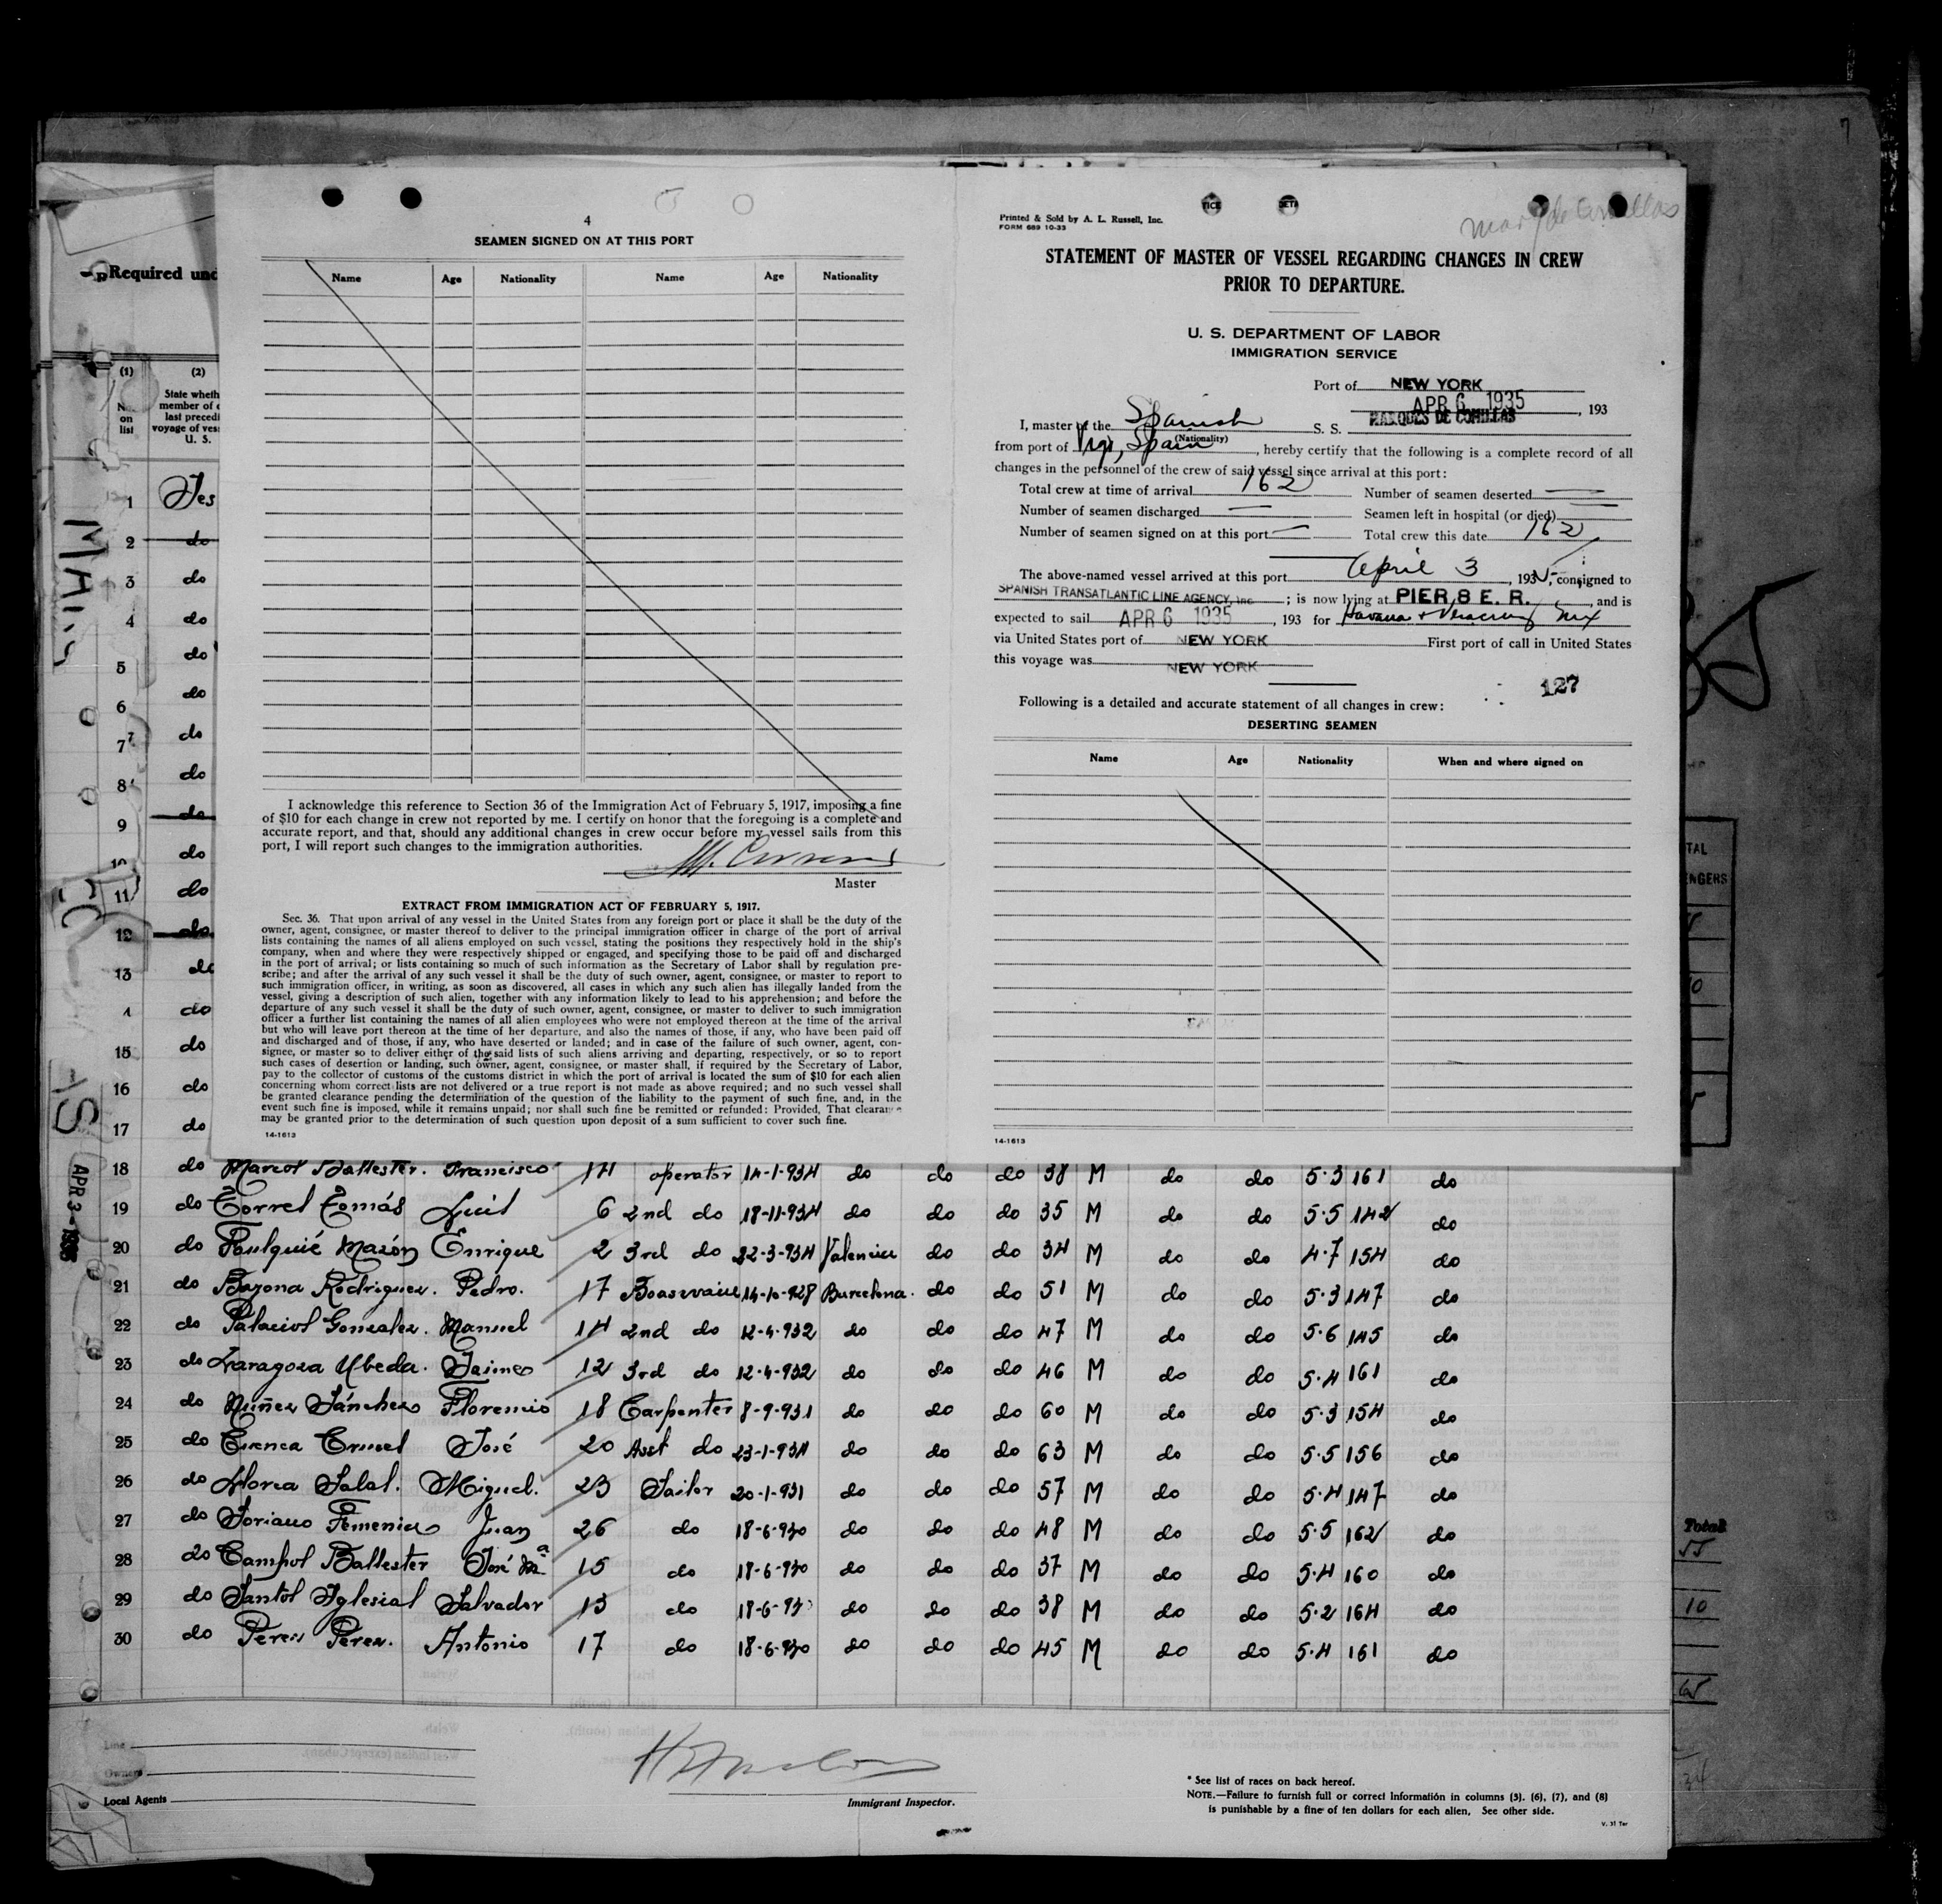 7
4
SEAMEN SIGNED ON AT THIS PORT
Name Age Nationality Name Age Nationality
I acknowledge this reference to Section 36 of the Immigration Act of February 5, 1917, imposing a fine
of $10 for each change in crew not reported by me. I certify on honor that the foregoing is a complete and
accurate report, and that, should any additional changes in crew occur before my vessel sails from this
port, I will report such changes to the immigration authorities.
Master
EXTRACT FROM IMMIGRATION ACT OF FEBRUARY 5, 1917.
Sec. 36. That upon arrival of any vessel in the United States from any foreign port or place it shall be the duty of the
owner, agent, consignee, or master thereof to deliver to the principal immigration officer in charge of the port of arrival
lists containing the names of all aliens employed on such vessel, stating the positions they respectively hold in the ship's
company, when and where they were respectively shipped or engaged, and specifying those to be paid off and discharged
in the port of arrival; or lists containing so much of such information as the Secretary of Labor shall by regulation pre-
scribe; and after the arrival of any such vessel it shall be the duty of such owner, agent, consignee, or master to report to
such immigration officer, in writing, as soon as discovered, all cases in which any such alien has illegally landed from the
vessel, giving a description of such alien, together with any information likely to lead to his apprehension; and before the
departure of any such vessel it shall be the duty of such owner, agent, consignee, or master to deliver to such immigration
officer a further list containing the names of all alien employees who were not employed thereon at the time of the arrival
but who will leave port thereon at the time of her departure, and also the names of those, if any, who have been paid off
and discharged and of those, if any, who have deserted or landed; and in case of the failure of such owner, agent, con-
signee, or master so to deliver either of the said lists of such aliens arriving and departing, respectively, or so to report
such cases of desertion or landing, such owner, agent, consignee, or master shall, if required by the Secretary of Labor,
pay to the collector of customs of the customs district in which the port of arrival is located the sum of $10 for each alien
concerning whom correct lists are not delivered or a true report is not made as above required; and no such vessel shall
be granted clearance pending the determination of the question of the liability to the payment of such fine, and, in the
event such fine is imposed, while it remains unpaid; nor shall such fine be remitted or refunded: Provided, That clearance
may be granted prior to the determination of such question upon deposit of a sum sufficient to cover such fine.
14-1613
Printed & Sold by A. L. Russell, Inc.
FORM 689 10-33
STATEMENT OF MASTER OF VESSEL REGARDING CHANGES IN CREW
PRIOR TO DEPARTURE.
U. S. DEPARTMENT OF LABOR
IMMIGRATION SERVICE
Port of NEW YORK
APR 6 1935, 193
I, master of the Spanish S. S. MARQUES DE COMILLAS
(Nationality)
from port of Vigo, Spain, hereby certify that the following is a complete record of all
changes in the personnel of the crew of said vessel since arrival at this port:
Total crew at time of arrival 162 Number of seamen deserted
Number of seamen discharged Seamen left in hospital (or died)
Number of seamen signed on at this port Total crew this date 162
The above-named vessel arrived at this port April 3, 1935, consigned to
SPANISH TRANSATLANTIC LINE AGENCY, Inc; is now lying at PIER 8 E. R., and is
expected to sail APR 6 1935, 193 for Havana + Veracruz Mex
via United States port of NEW YORK First port of call in United States
this voyage was NEW YORK
127
Following is a detailed and accurate statement of all changes in crew:
DESERTING SEAMEN
Name Age Nationality When and where signed on
14-1613
Required und
(1) (2)
No. on list
State wheth
member of c
last precedi
voyage of ves
U. S.
1 Yes
2 do
3 do
4 do
5 do
6 do
7 do
8 do
9 do
10 do
11 do
12 do
13 do
do
15 do
16 do
17 do
APR 3-1935
18 do Marcot Ballester. Francisco 14 operator 14-1-934 do do do 38 M do do 5·3 161 do
19 do Torrel Tomás Luis 6 2nd do 18-11-934 do do do 35 M do do 5·5 142 do
20 do Faulquié Mazón Enrique 2 3rd do 22-3-934 Valencia do do 34 M do do 4·7 154 do
21 do Bazona Rodriguez. Pedro. 17 14-10-928 Barcelona. do do 51 M do do 5·3 147 do
22 do Palaciol Gonzalez. Manuel 14 2nd do 12-4-932 do do do 47 M do do 5·6 145 do
23 do Zaragoza Ubeda. Jaime 12 3rd do 12-4-932 do do do 46 M do do 5·4 161 do
24 do Núñez Sánchez Florencio 18 Carpenter 8-9-931 do do do 60 M do do 5·3 154 do
25 do Cuenca José 20 Asst do 23-1-934 do do do 63 M do do 5·5 156 do
26 do Llorca Miguel. 23 Sailor 20-1-931 do do do 57 M do do 5·4 147 do
27 do Soriano Femenia Juan 26 do 18-6-930 do do do 48 M do do 5·5 162 do
28 do Campol Ballester José Mª 15 do 18-6-930 do do do 37 M do do 5·4 160 do
29 do Santol Iglesial Salvador 13 do 18-6-930 do do do 38 M do do 5·2 164 do
30 do Perez Pérez. Antonio 17 do 18-6-930 do do do 45 M do do 5·4 161 do
Line
Owners
Local Agents
Immigrant Inspector.
* See list of races on back hereof.
NOTE.—Failure to furnish full or correct Information in columns (3), (6), (7), and (8)
is punishable by a fine of ten dollars for each alien, See other side.
V. 31 Ter
TAL
ENGERS
Total
55
10
65